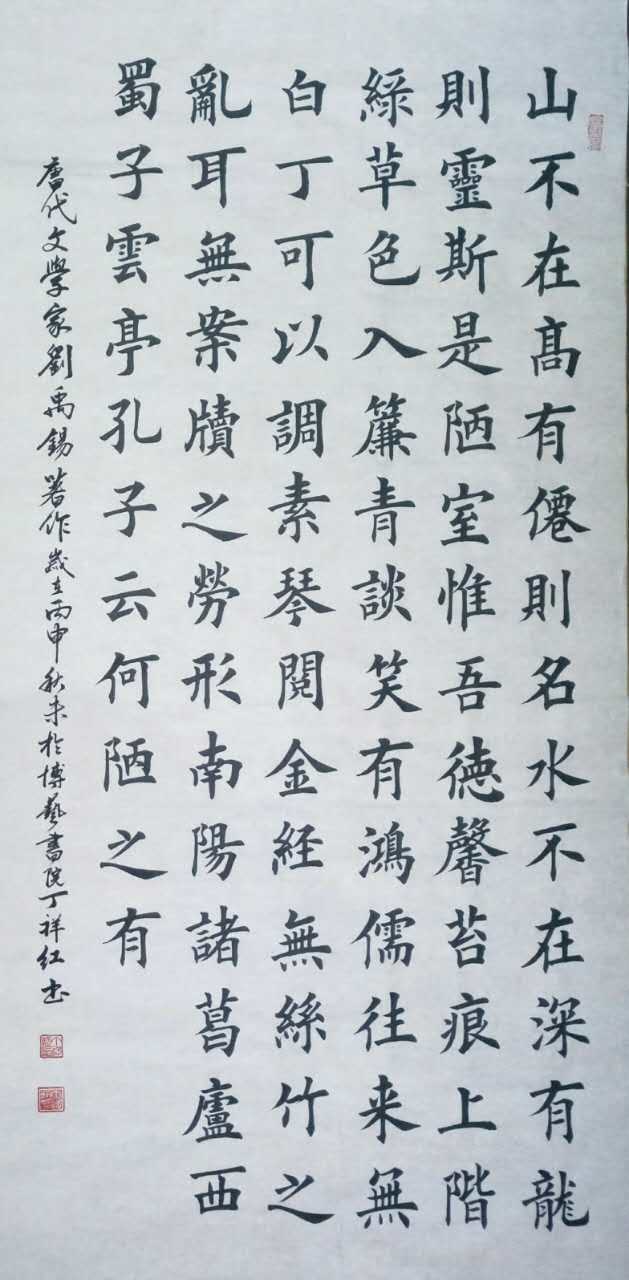 山不在高有僊則名水不在深有龍
則靈斯是陋室惟吾德馨苔痕上階
綠草色入簾青談笑有鴻儒往来無
白丁可以調素琴閱金経無絲竹之
亂耳無案牘之勞形南陽諸葛廬西
蜀子雲亭孔子云何陋之有
唐代文學家劉禹錫著作歲在丙申秋末於博藝書院丁祥红书